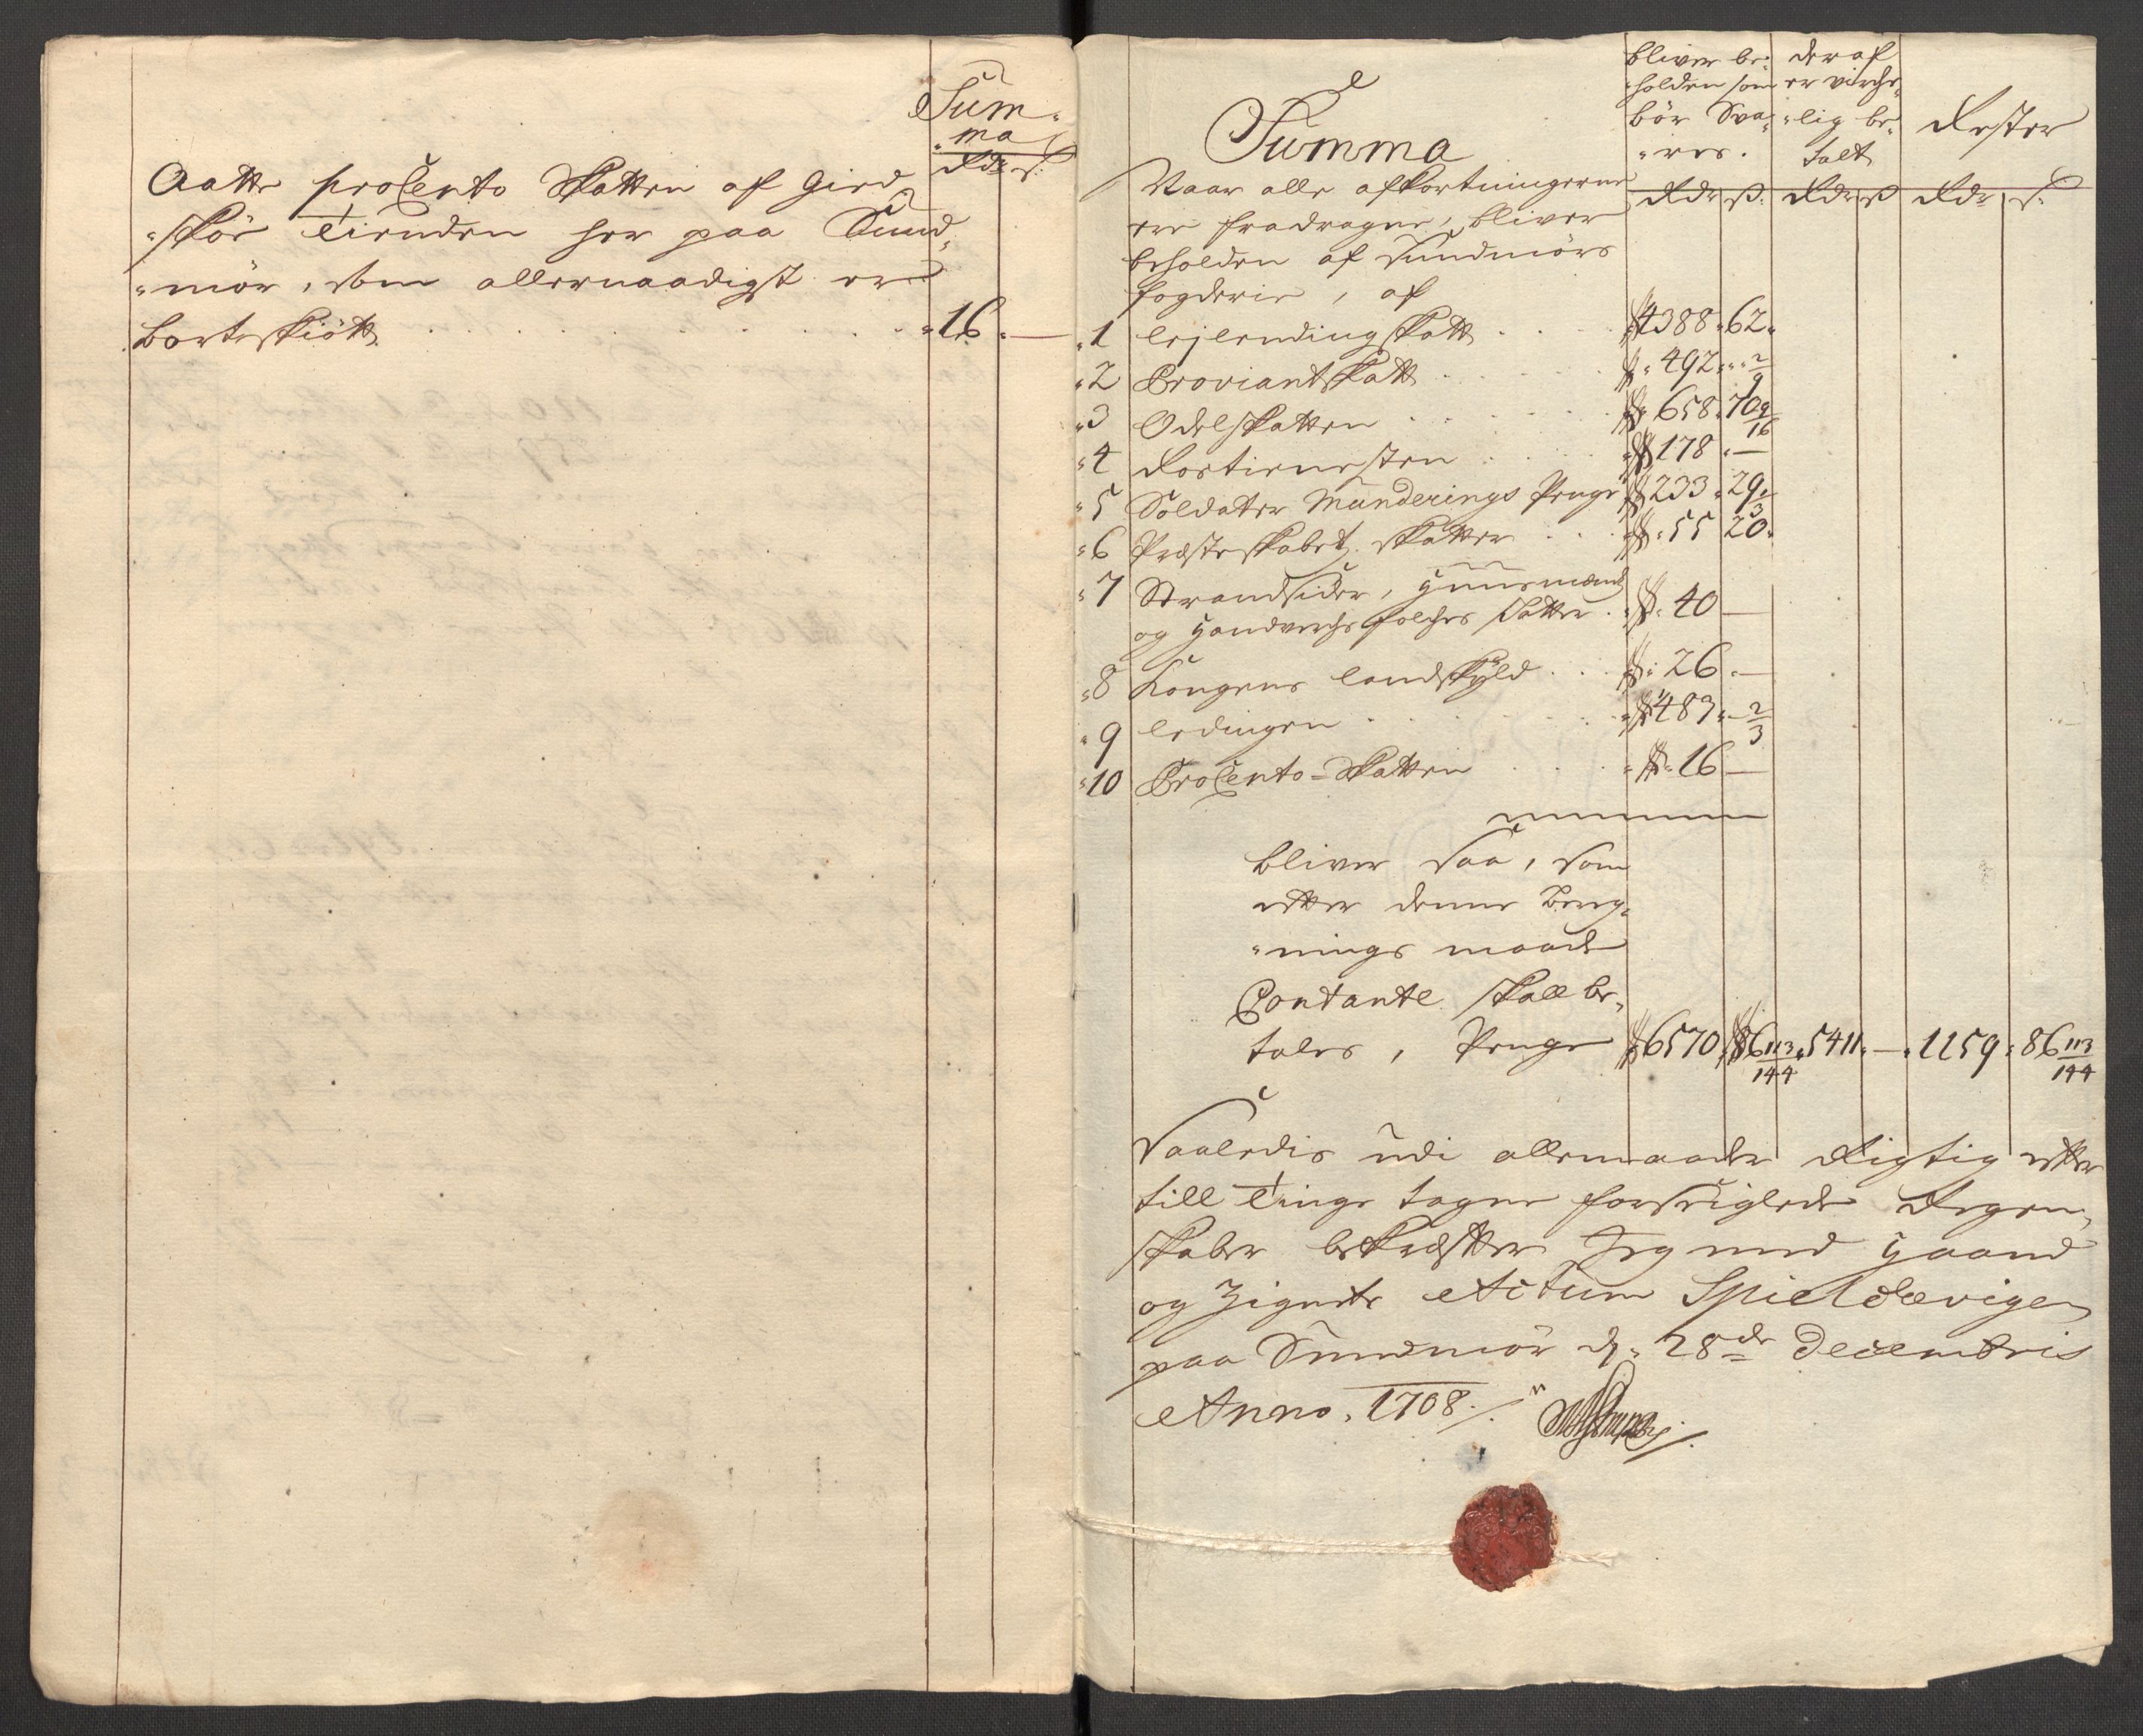 Sum-
"ma
Rdr ß.
Aatte proCento Skatten af Gird
"skör Tienden her paa Sund-
"mör, som allernaadigst er
bortskiött . . . . . . . "16. —
Summa
bliver be-
holden som
bör Sva-
"res.
Rdr ß.
deraf
er virche-
"lig be-
talt
Rdr ß
Rester
Rdr ß.
Naar alle afkortningerne
ere fradragne, bliver
beholden af Sundmörs
fogderie, af
"1 lejlendingskatt . . . 4388 "62"
"2 Proviantskatt . . . . 492 " " 2/9
"3 Odelskatten . . . . 658 "70 9/16
"4 Rostienesten . . . . 178 "—
"5 Soldater Munderings Penge 233 "29 1/3
"6 Præsteskabetz skatter . . . 55 20"
"7 Strandsider, Huusmænd
og Handverchsfolches Skatter . 40 —
"8 Kongens landskyld . . . 26 . —
"9 ledingen . . . . . 483 "— 2/3
"10 ProCento-Skatten . . . . 16 —
bliver Saa, som
efter denne Bereg-
"nings maade
Contante skall be-
tales, Penge 6570 "86 113/144 "5411 "— "1159 "86 113/144
Saaledis udi allemaader Rigtig efter
till Tinge tagne forseiglede Regen-
skaber bekræfter Jeg med Haand
og Zignete Actum Spieldevigen
paa Sundmör d. 28de Decembris
Anno. 1708 ./.